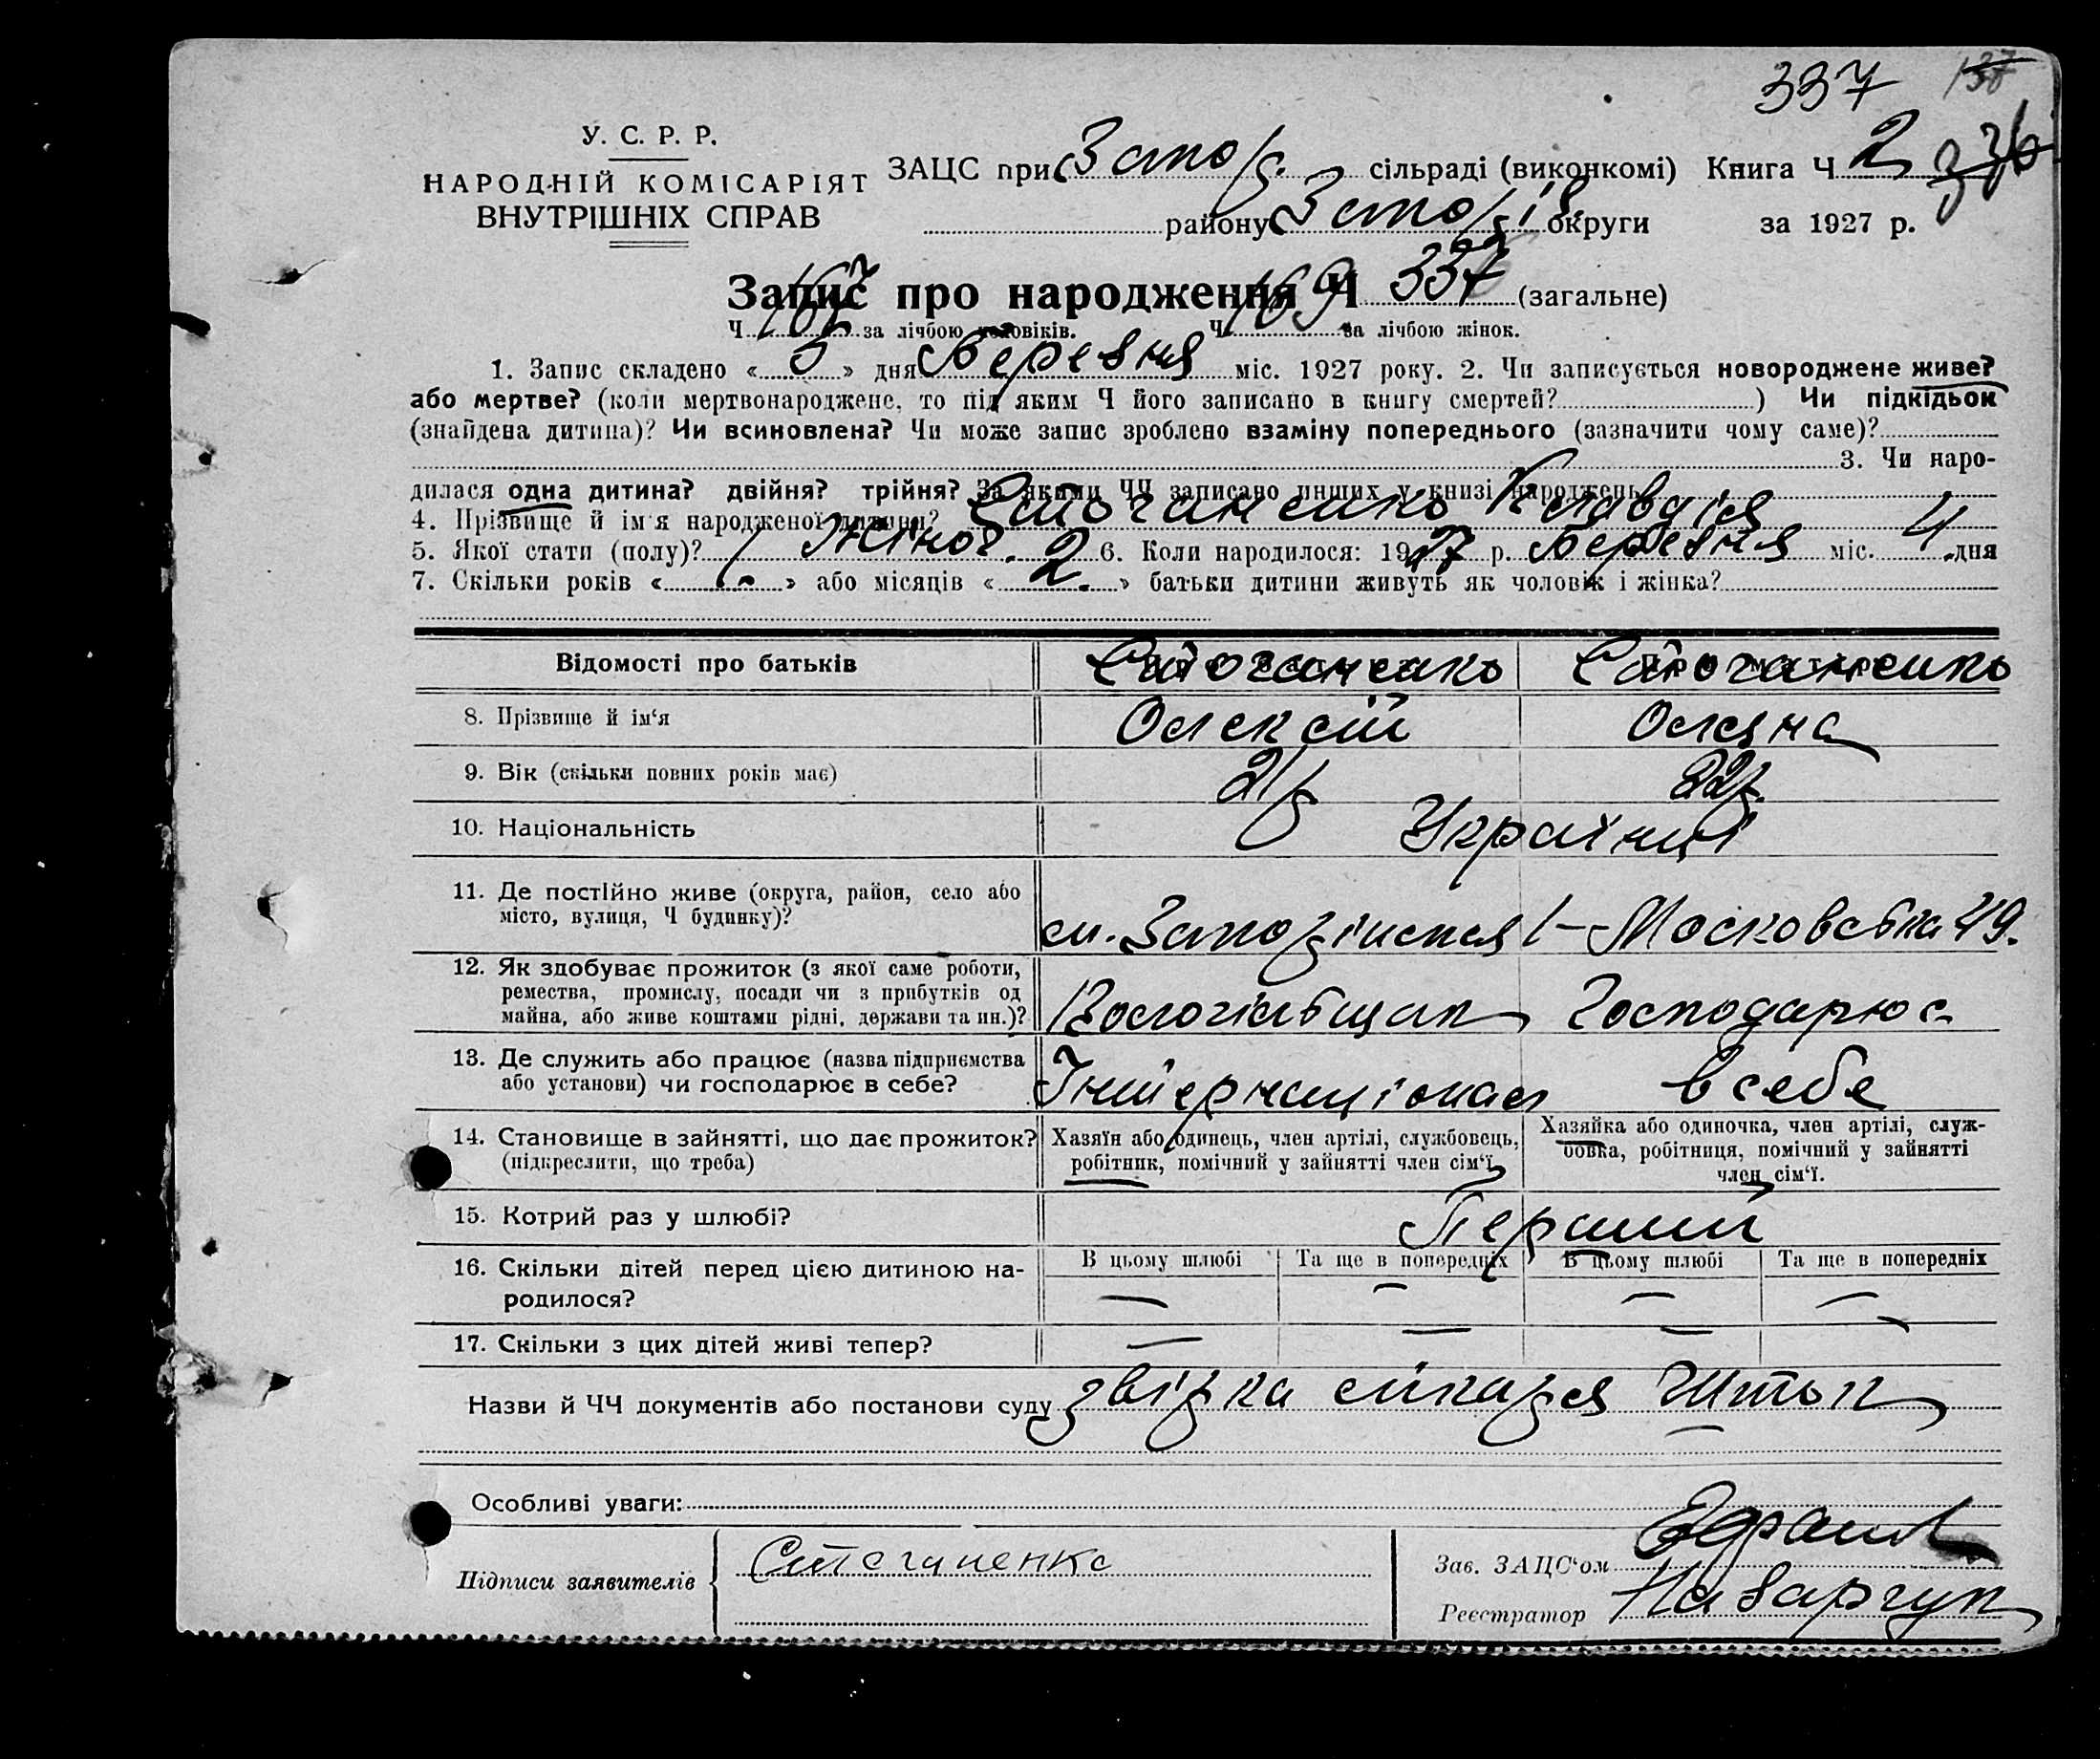 337 137
У. С. Р. Р.
НАРОДНІЙ КОМІСАРІЯТ
ВНУТРІШНІХ СПРАВ
ЗАЦС при Запоріз. сільраді (виконкомі) Книга Ч 2 336
району Запоріз округи за 1927 р.
Запис про народження Ч 337 (загальне)
Ч 167 за лічбою чоловіків. Ч 169 за лічбою жінок.
1. Запис складено « 5 » дня Березня міс. 1927 року. 2. Чи записується новороджене живе?
або мертве? (коли мертвонароджене, то під яким Ч його записано в книгу смертей? ) Чи підкідьок
(знайдена дитина)? Чи всиновлена? Чи може запис зроблено взаміну попереднього (зазначити чому саме)?
3. Чи наро-
дилася одна дитина? двійня? трійня? За якими ЧЧ записано инших у книзі народжень
4. Прізвище й ім'я народженої дитини? Стоганенко Клавдія
5. Якої статі (полу)? Жіноч. 6. Коли народилося: 1927 р. Березня міс. 4 дня
7. Скільки років « — » або місяців « 2. » батьки дитини живуть як чоловік і жінка?
Відомості про батьків Стоганенко Стоганенко
8. Прізвище й ім'я Олексій Олена
9. Вік (скільки повних років має) 21р 22р.
10. Національність Українці
11. Де постійно живе (округа, район, село або
місто, вулиця, Ч будинку)? м. Запоріжжя 1-Московська 49.
12. Як здобуває прожиток (з якої саме роботи,
ремества, промислу, посади чи з прибутків од
майна, або живе коштами рідні, держави та ин.)? Господарює
13. Де служить або працює (назва підприємства
або установи) чи господарює в себе? Інтернаціонал в себе
14. Становище в зайнятті, що дає прожиток?
(підкреслити, що треба)
Хазяїн або одинець, член артілі, службовець,
робітник, помічний у зайнятті член сім'ї
Хазяйка або одиночка, член артілі, служ-
бовка, робітниця, помічний у зайнятті
член сім'ї.
15. Котрий раз у шлюбі? Перший
16. Скільки дітей перед цією дитиною на-
родилося?
В цьому шлюбі Та ще в попередніх В цьому шлюбі Та ще в попередніх
— — — —
17. Скільки з цих дітей живі тепер? — — — —
Назви й ЧЧ документів або постанови суду звізка лікаря
Особливі уваги:
Підписи заявителів Стоганенко
Зав. ЗАЦС'ом
Реєстратор